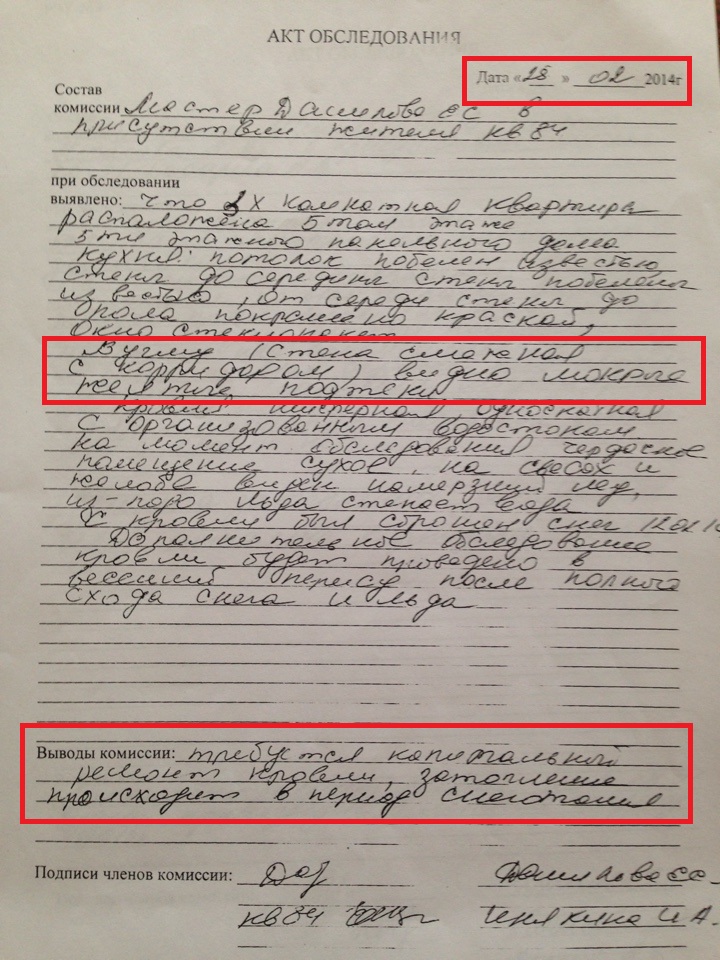 АКТ ОБСЛЕДОВАНИЯ
Дата «28» 02 2014г
Состав
комиссии Мастер Данилова ЕС в
присутствии жителя кв 84
при обследовании
выявлено: что 2х комнатная квартира
расположена 5 том этаже
5ти этажного панельного дома
Кухня: потолок побелен известью
стены до середины стены побелены
известью, от середи стены до
пола покрашено краской,
окно стеклопакет
В углу (стена смежная
с корридором) видно мокрые
желтые подтеки
кровля шиферная, односкатная
С организованным водостоком
на момент обследования чердачное
помещение сухое, на свесах и
желобе виден намерзший лед,
из-подо льда стекает вода
С кровли был сброшен снег
Дополнительное обследование
кровли будет проведено в
весенний период после полного
схода снега и льда
Выводы комиссии: требуется капитальный
ремонт кровли, затопление
происходит в период снеготаяния
Подписи членов комиссии: Данилова ЕС
кв 84 И.А.